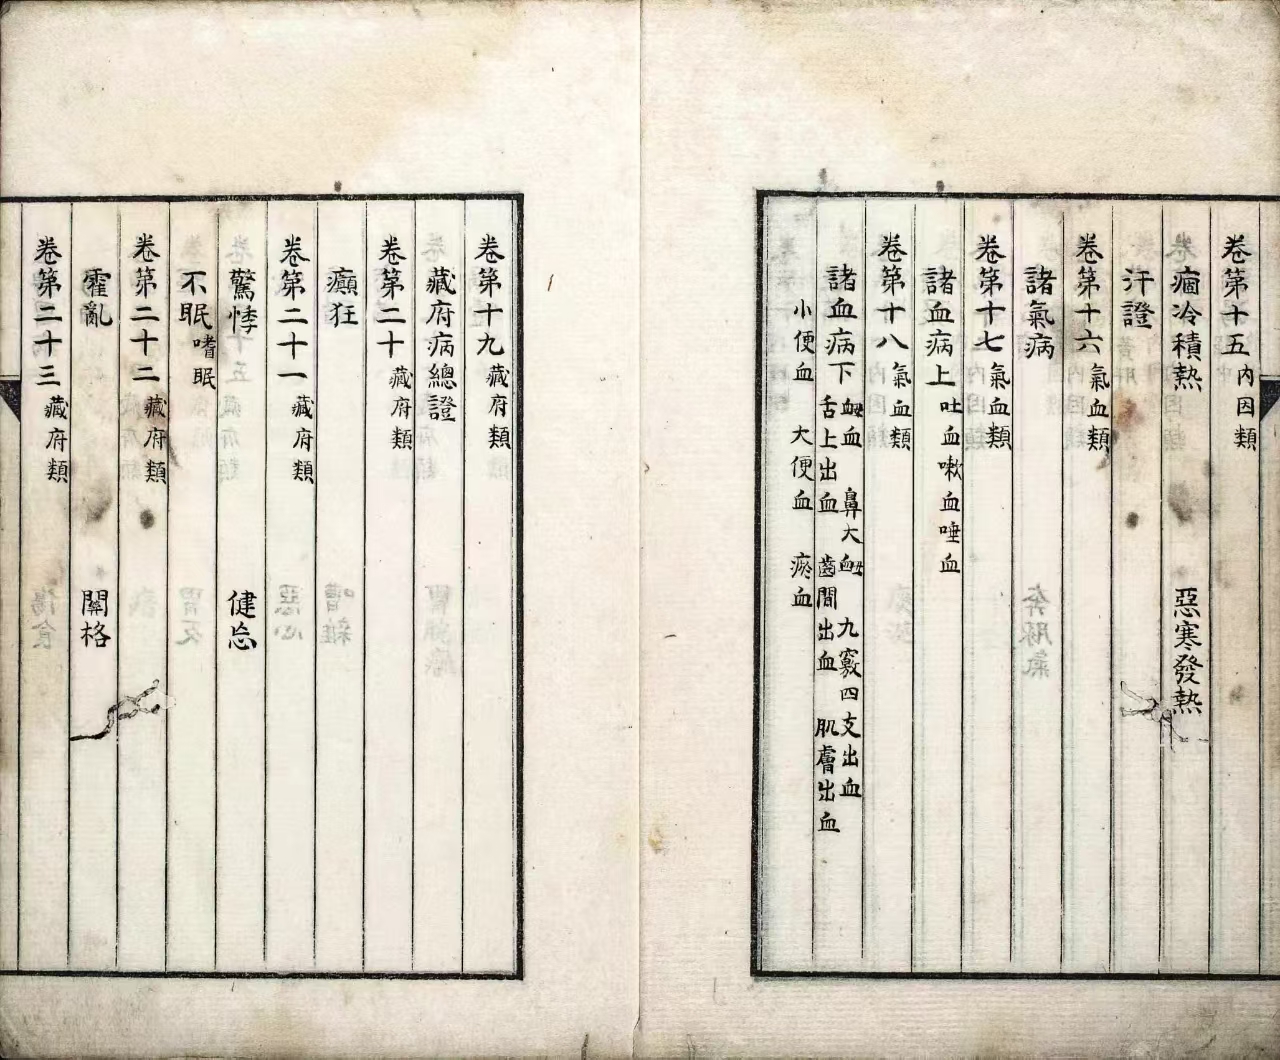 卷第十五 內因類
痼冷積熱 惡寒發熱
汗證
卷第十六 氣血類
諸氣病
卷第十七 氣血類
諸血病上 吐血嗽血唾血
卷第十八 氣血類
諸血病下 衂血 鼻大衂 九竅四支出血
舌上出血 齒間出血 肌膚出血
小便血 大便血 瘀血
卷第十九 藏府類
藏府病總證
卷第二十 藏府類
癲狂
卷第二十一 藏府類
驚悸 健忘
不眠 嗜眠
卷第二十二 藏府類
霍亂 關格
卷第二十三 藏府類